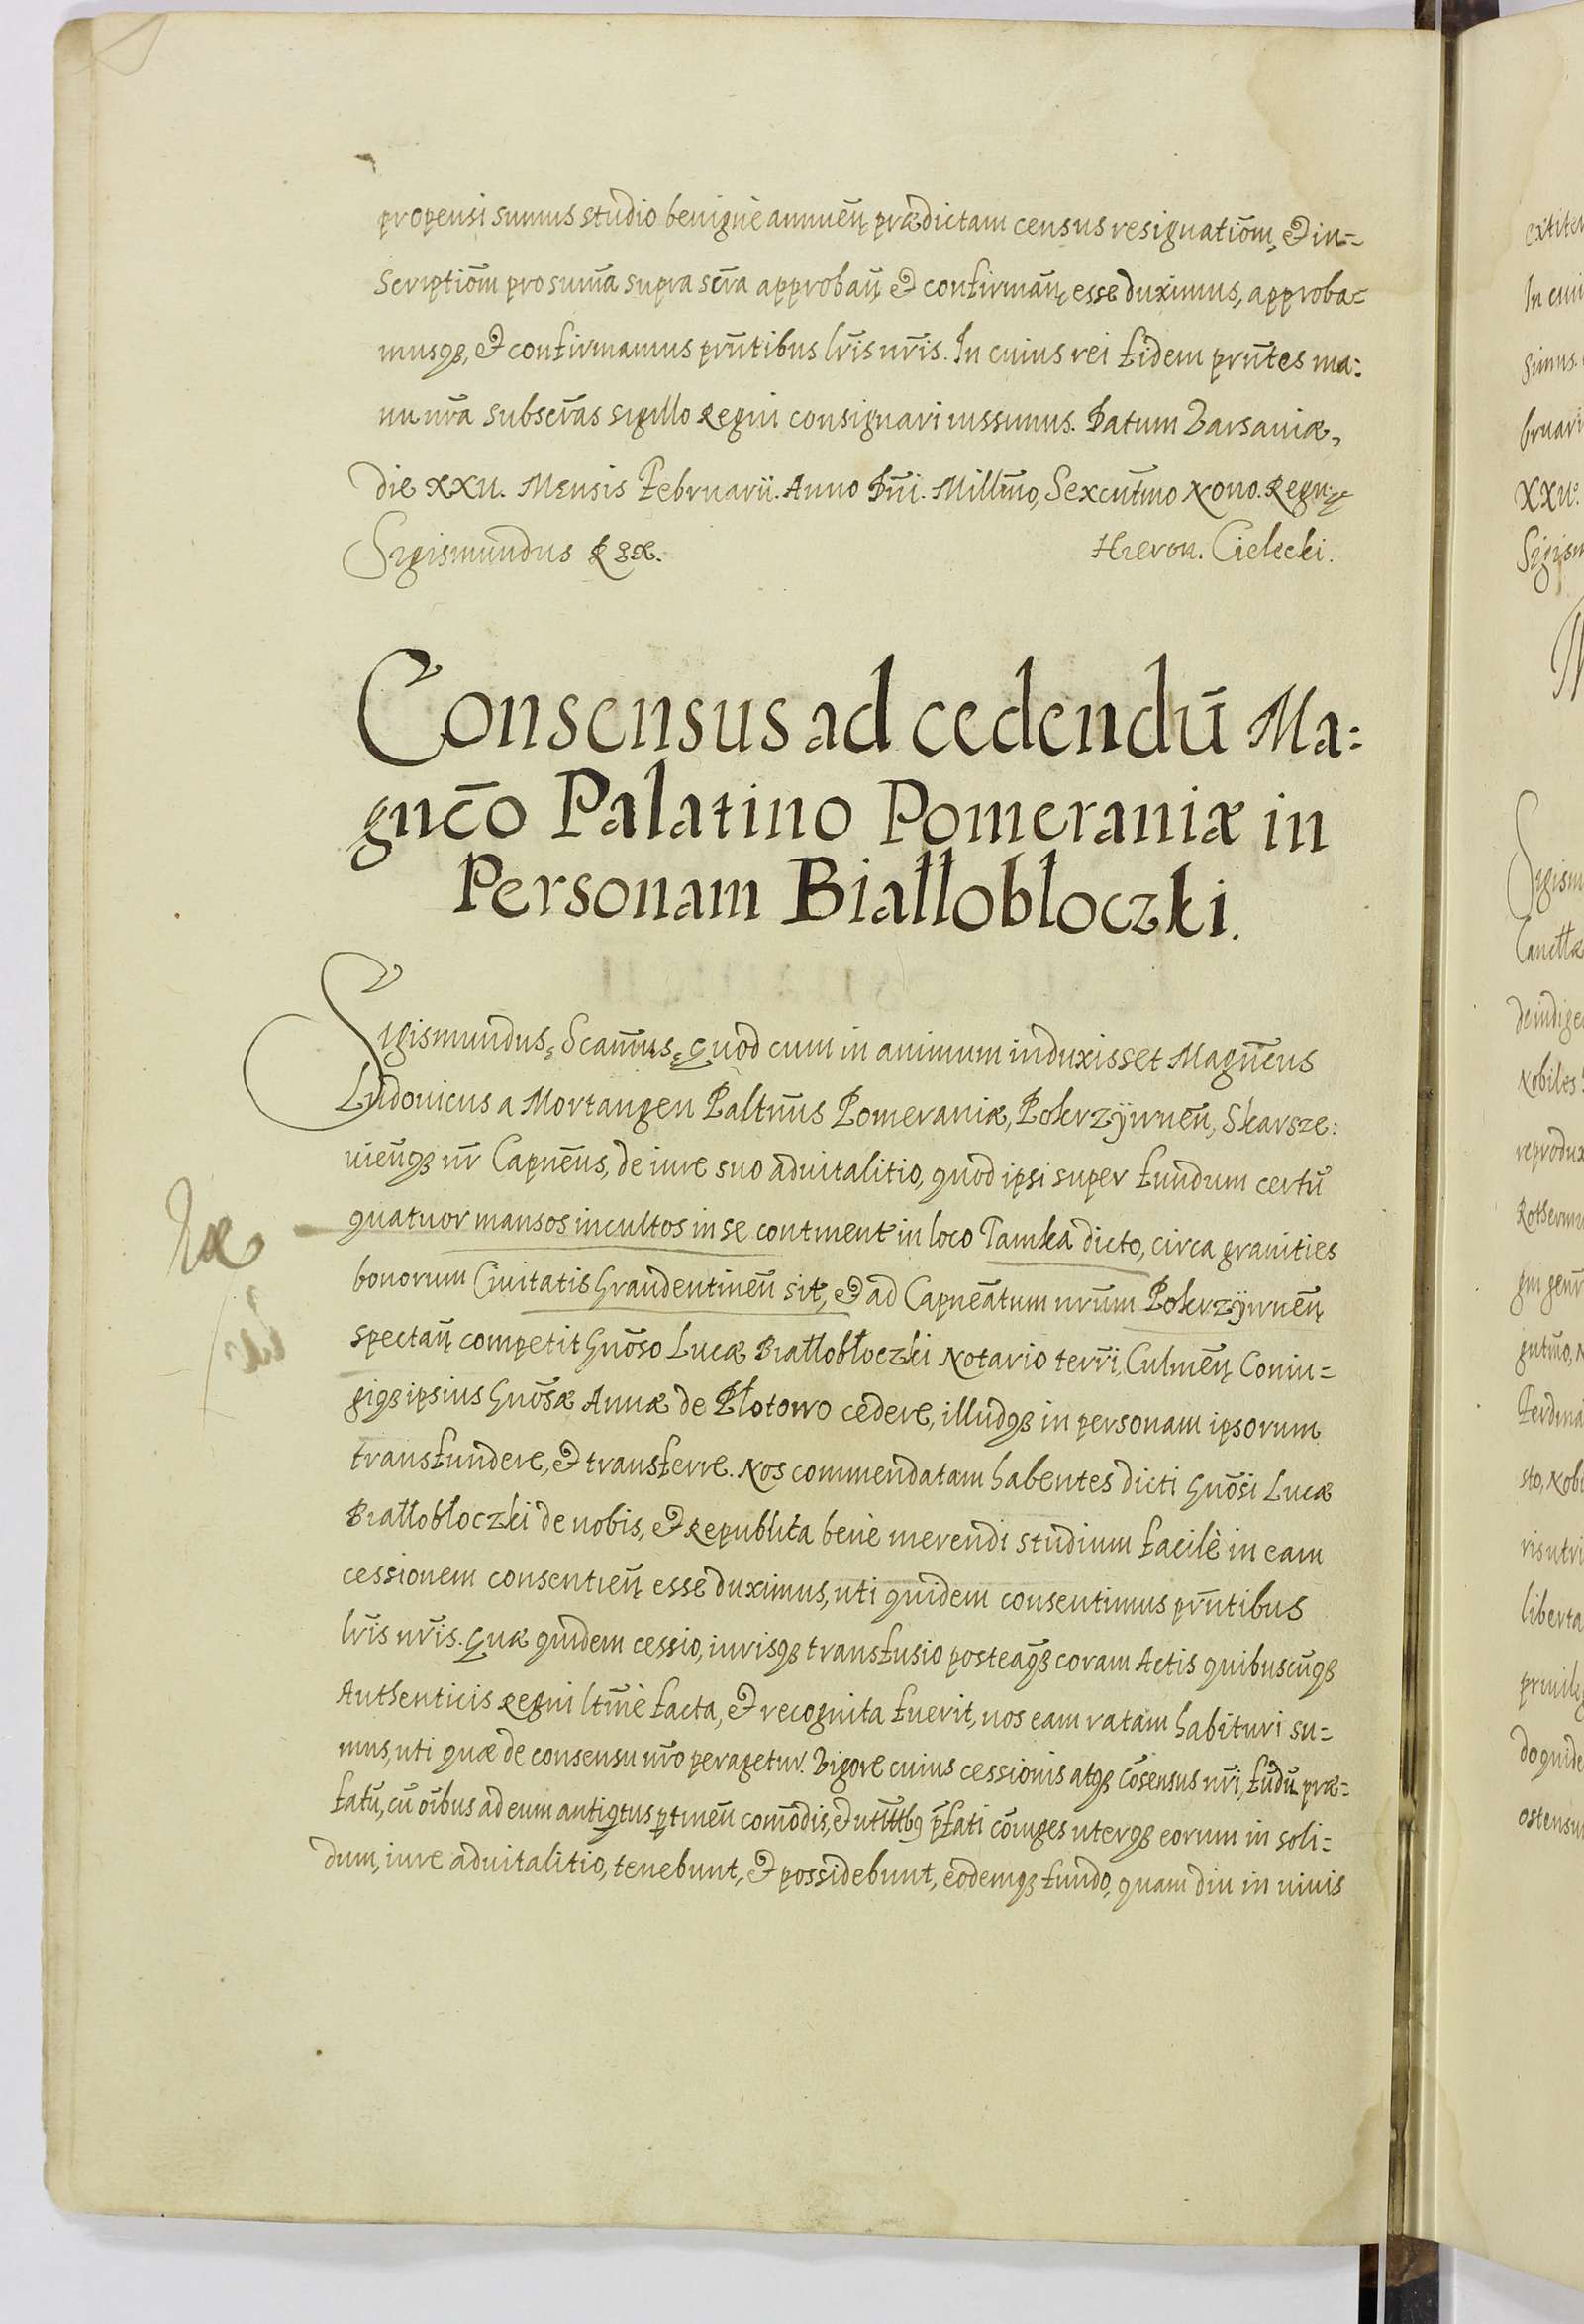 propensi sumus studio benignè annuen̄ prædictam census resignatiōm, & in=
scriptiōm pro sum̄a supra scr̄a approban̄ & confirman̄ esse duximus, approba=
musq₃, & confirmamus prn̄tibus lr̄is nr̄is. In cuius rei fidem prn̄tes ma:
nu nr̄a subscr̄as sigillo Regni consignari iussimus. Datum Varsaviæ,
die XXV. Mensis Februarii. Anno Dn̄i. Millm̄o, Sexcūtmo Nono. Regn:
Sigismundus Rex. Hieron. Cielecki.
Consensus ad cedendū Ma:
gnc̄o Palatino Pomeraniæ in
Personam Białłobłoczki.
Sigismundus, Scam̄us, Quod cum in animum induxisset Magn̄cus
Ludovicus a Mortangen Paltn̄us Pomeraniæ, Pokrzÿwnen̄, Skarsze:
vien̄q₃ nr̄ Capnēus, de iure suo advitalitio, quod ipsi super fundum certū
quatuor mansos incultos in se continent in loco Tamka dicto, circa granities
bonorum Civitatis Graudentinen̄ sit, & ad Capnēatum nrūm Pokrzÿwnen̄
spectan̄ competit Gnōso Lucæ Białłobłoczki Notario terri Culmen̄ Coniu=
giq₃ ipsius Gnōsæ Annæ de Płotowo cedere, illudq₃ in personam ipsorum
transfundere, & transferre. Nos commendatam habentes dicti Gnōsi Lucæ
Białłobłoczki de nobis, & Republica benè merendi studium facilè in eam
cessionem consentien̄ esse duximus, uti quidem consentimus prn̄tibus
lr̄is nr̄is. Quæ quidem cessio, iurisq₃ transfusio posteaq̄₃ coram Actis quibuscūq₃
Authenticis Regni ltm̄è facta, & recognita fuerit, nos eam ratam habituri su=
mus, uti quæ de consensu nr̄o peragetur. Vigore cuius cessionis atq₃ cōsensus nr̄i, fūdū præ=
fatū, cū oībus ad eum antiqtus ptinen̄ com̄odis, & utilittb₉ p̄fati cōiuges uterq₃ eorum in soli=
dum, iure advitalitio, tenebunt, & possidebunt, eodemq₃ fundo, quam diu in vivis